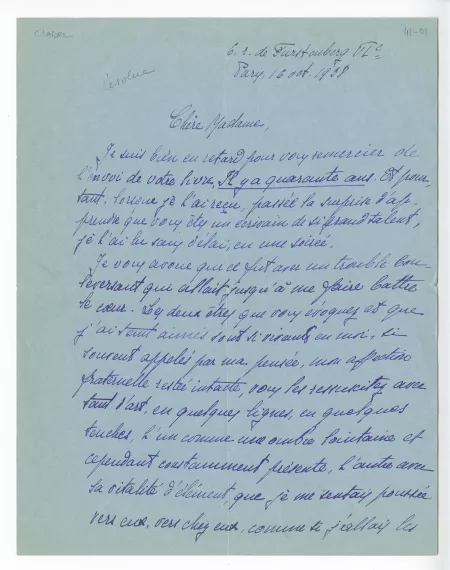 CLADEL
41-01
6. r. de Furstenberg VIe
Paris, 16 oct. 1938
Chère Madame,
Je suis bien en retard pour vous remercier de
l'envoi de votre livre, Il y a quarante ans. Et pour-
tant, lorsque je l'ai reçu, passée la surprise d'ap-
prendre que vous êtes un écrivain de si grand talent,
je l'ai lu sans délai, en une soirée.
Je vous avoue que ce fut avec un trouble bou-
leversant qui allait jusqu'à me faire battre
le cœur. Les deux êtres que vous évoquez et que
j'ai tant aimés sont si vivants en moi, si
souvent appelés par ma pensée, mon affection
fraternelle restée intacte, vous les ressuscitez avec
tant d'art, en quelques lignes, en quelques
touches, l'un comme une ombre lointaine et
cependant constamment présente, l'autre avec
sa vitalité d'élément, que je me sentais poussée
vers eux, vers chez eux, comme si j'allais les